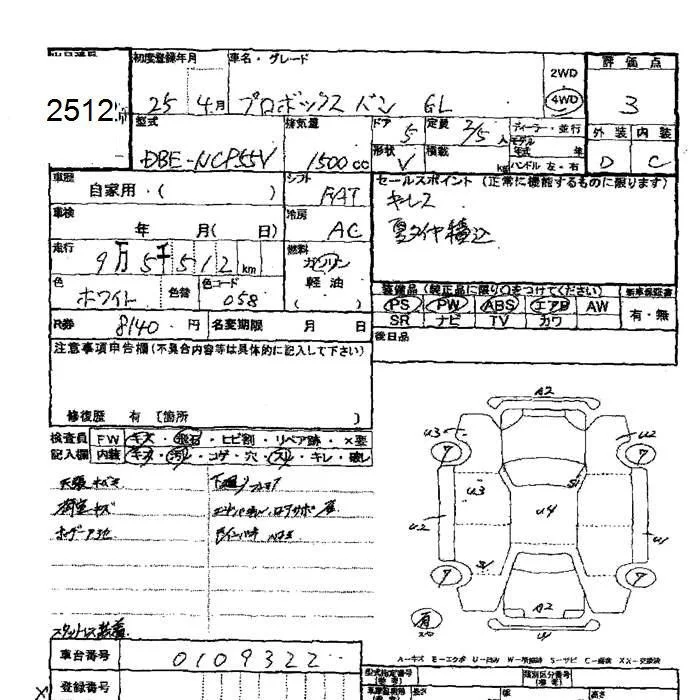 初度登録年月 車名・グレード 評価点
2512 25 4月 プロボックス バン GL 2WD 4WD 3
型式 排気量 ドア 5 定員 2/5人 ディーラー・並行 外装 内装
DBE-NCP55V 1500cc 形状 V 積載 kg モデル年式 年 ハンドル 左・右 D C
車歴 自家用・( ) シフト FAT セールスポイント (正常に機能するものに限ります)
車検 年 月( 日) 冷房 AC キーレス
夏タイヤ積込
走行 9万5千512km 燃料 ガソリン 軽油 ( )
色 ホワイト 色替 色コード 058
装備品 (純正品に限り○をつけてください) 新車保証書
PS PW ABS エアB AW 有・無
SR ナビ TV カワ
R券 8140円 名変期限 月 日
後日品
注意事項申告欄(不具合内容等は具体的に記入して下さい)
修復歴 有 [箇所 ]
検査員 FW キズ・飛石・ヒビ割・リペア跡・×要
記入欄 内装 キズ・汚れ・コゲ・穴・スレ・キレ・破レ
A2
U3 U2
7 7
U3 S1
U2 U4 U1
S1
7 7
A2
有
スタッドレス装着
A-キズ E-エクボ U-凹み W-補修跡 S-サビ C-腐食 XX-交換済
車台番号 0109322
登録番号
型式指定番号 (備考) 類別区分番号 (備考)
長さ 幅 高さ